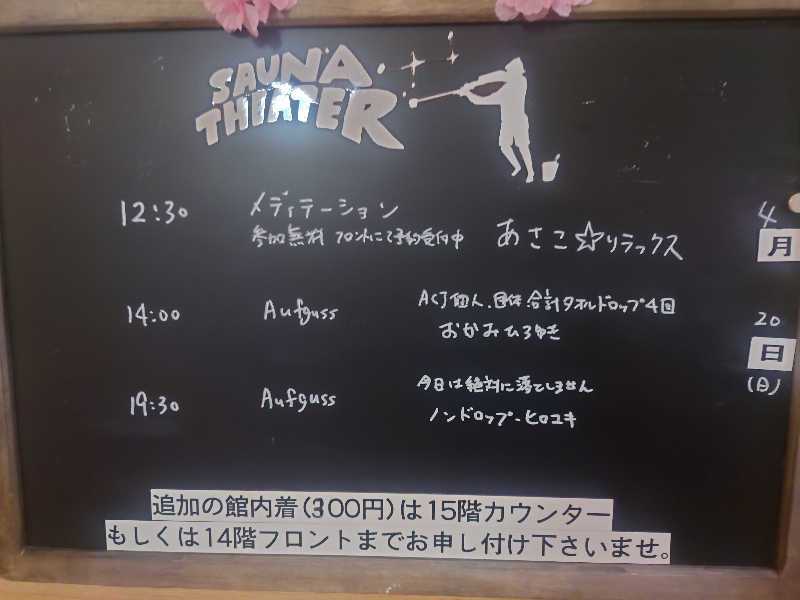 SAUNA
THEATER
4
月
20
日
(日)
12:30 メディテーション
参加無料 フロントにて予約受付中 あさこ☆リラックス
14:00 Aufguss ACJ個人、団体 合計タオルドロップ4回
おかみひろゆき
19:30 Aufguss 今日は絶対に落としません
ノンドロップ・ヒロユキ
追加の館内着(300円)は15階カウンター
もしくは14階フロントまでお申し付け下さいませ。